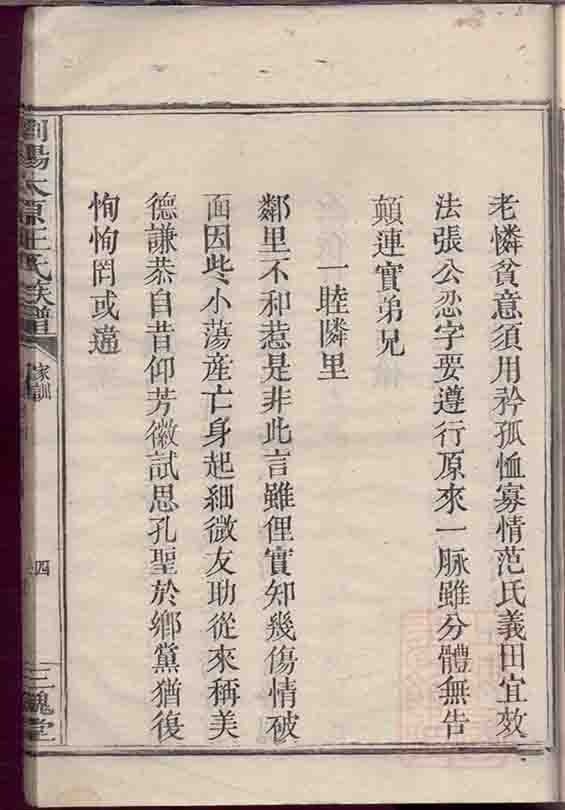 老憐貧意須用矜孤恤寡情范氏義田宜效
法張公忍字要遵行原來一脉雖分體無告
顛連實弟兄
一睦隣里
鄰里不和惹是非此言雖俚實知幾傷情破
面因些小蕩産亡身起細微友助從來稱美
德謙恭自昔仰芳徽試思孔聖於鄉黨猶復
恂恂罔或違
瀏陽太原王氏族譜
家訓
四
三槐堂